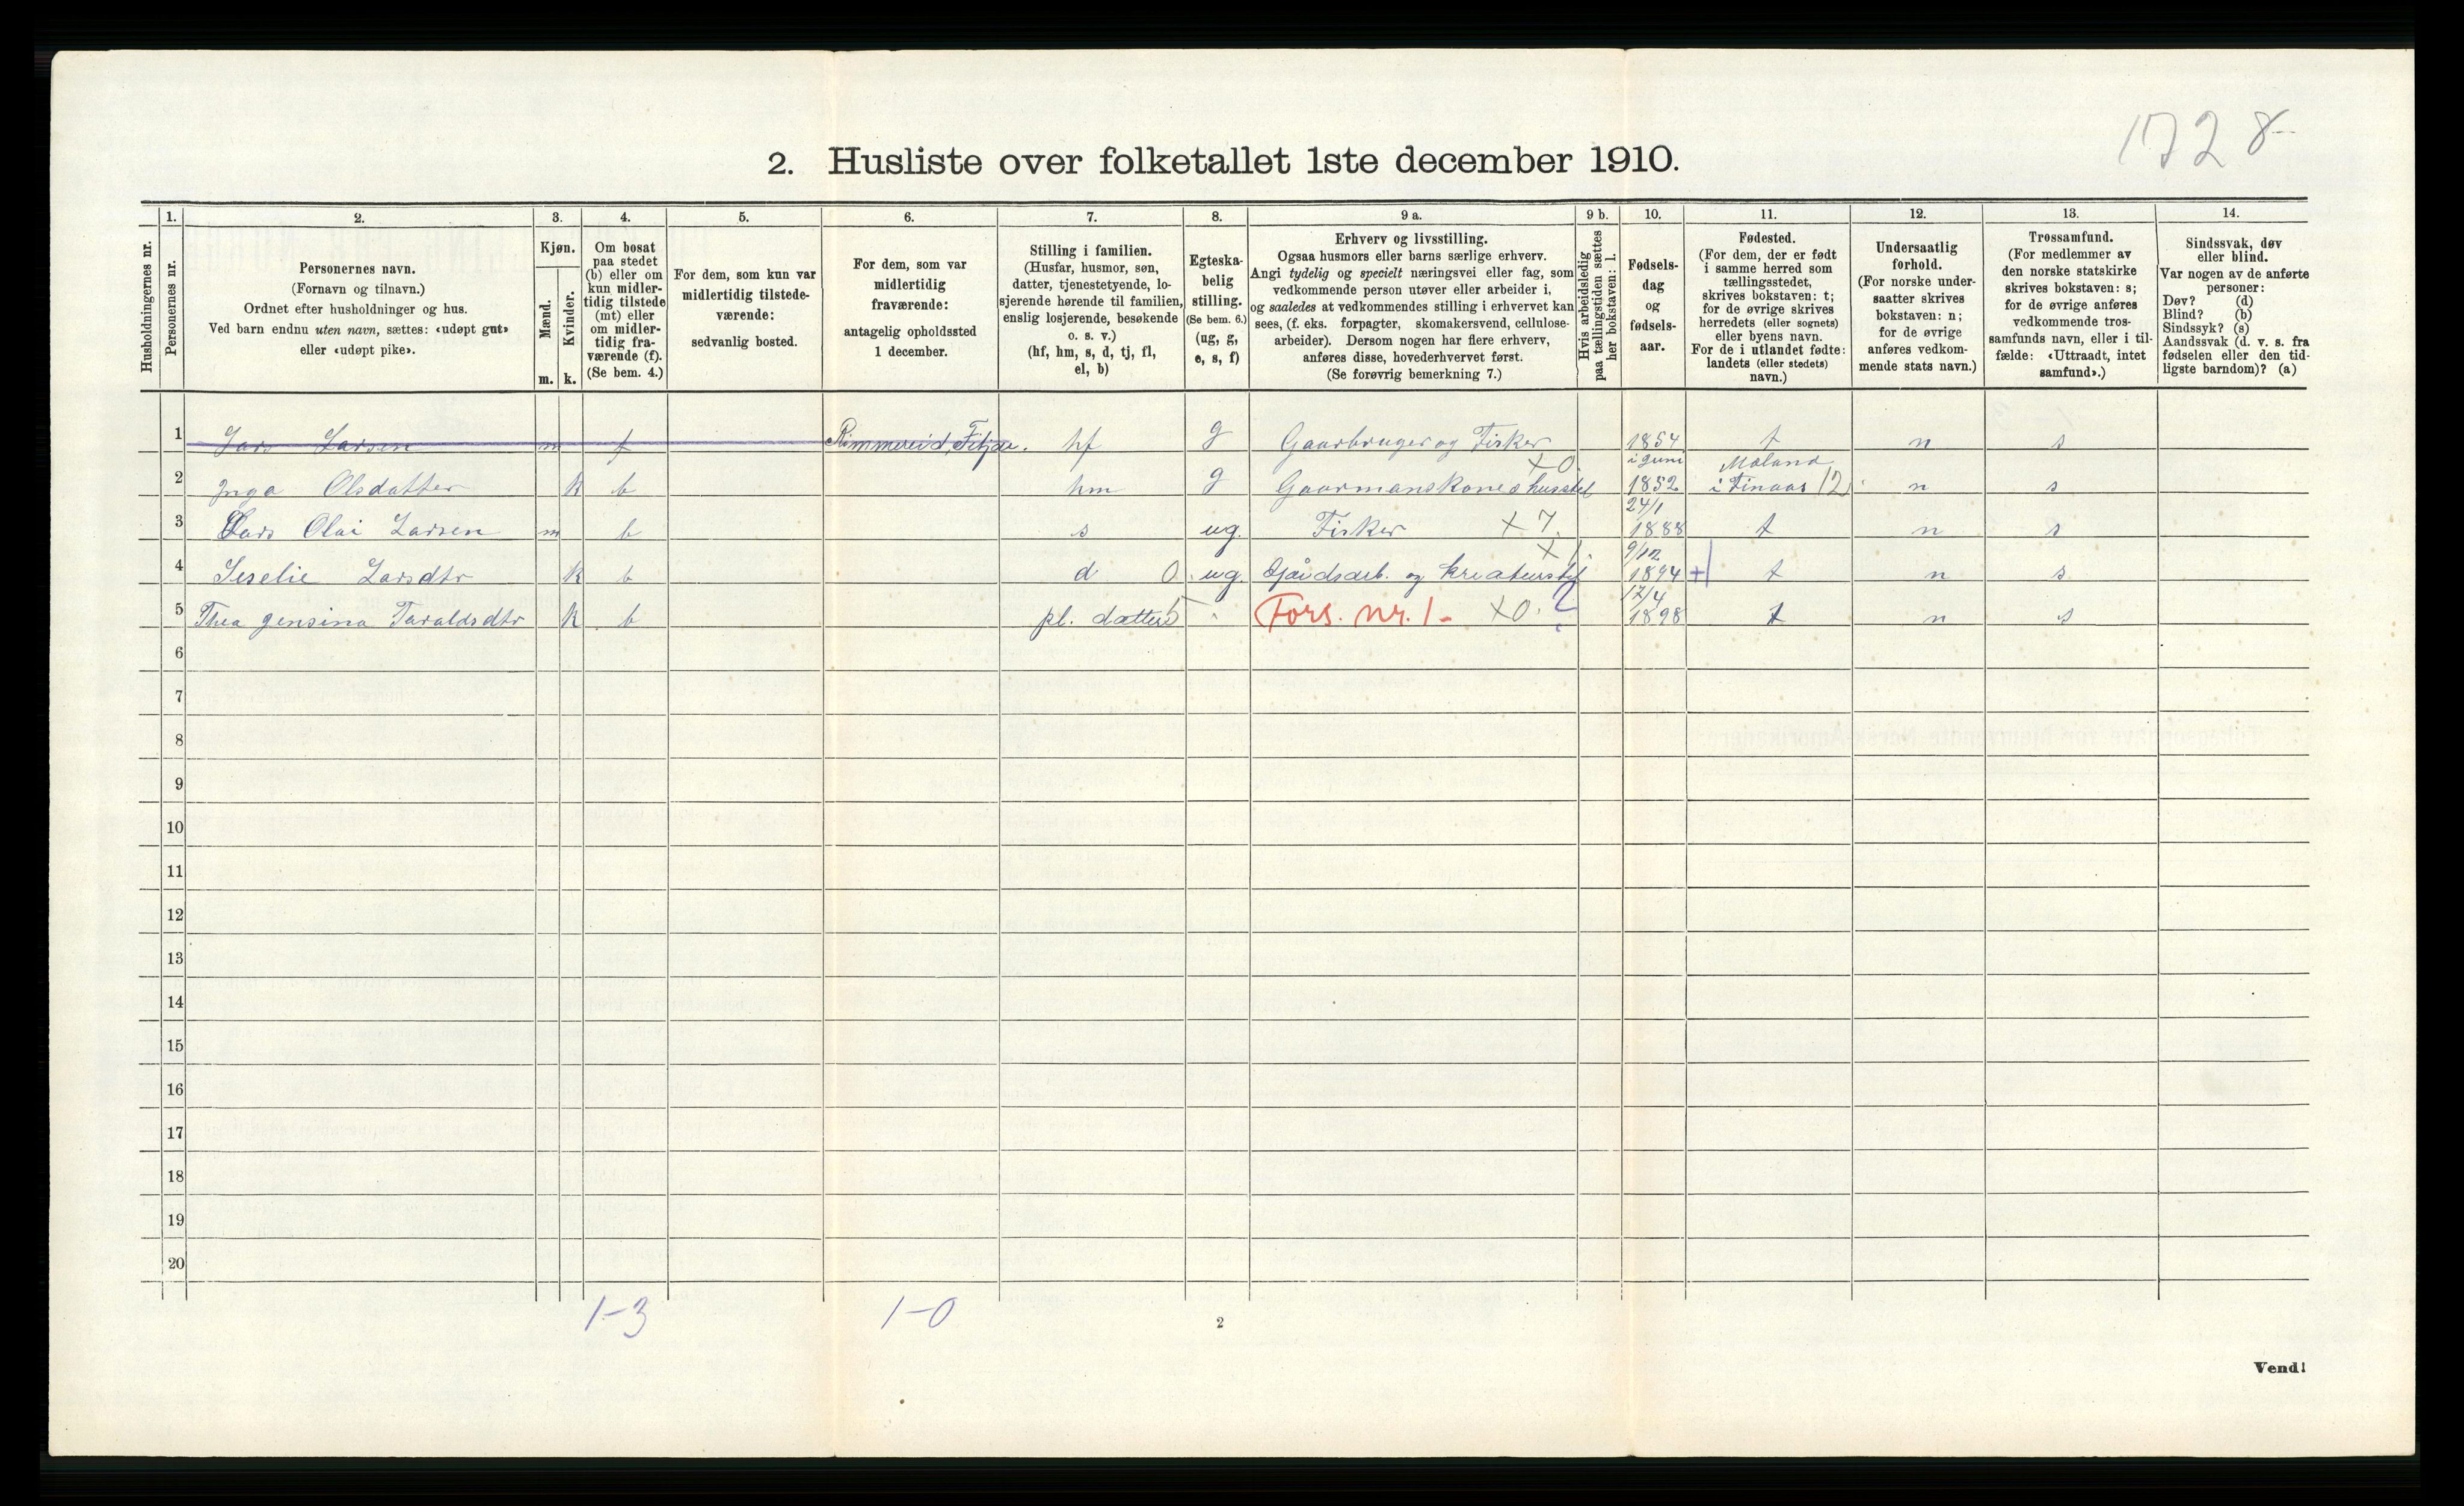 1728
2. Husliste over folketallet 1ste december 1910.
Husholdningernes nr.
1.
Personernes nr.
2.
Personernes navn.
(Fornavn og tilnavn.)
Ordnet efter husholdninger og hus.
Ved barn endnu uten navn, sættes: «udøpt gut»
eller «udøpt pike».
3.
Kjøn.
Mænd.
Kvinder.
m. k.
4.
Om bosat
paa stedet
(b) eller om
kun midler-
tidig tilstede
(mt) eller
om midler-
tidig fra-
værende (f).
(Se bem. 4.)
5.
For dem, som kun var
midlertidig tilstede-
værende:
sedvanlig bosted.
6.
For dem, som var
midlertidig
fraværende:
antagelig opholdssted
1 december.
7.
Stilling i familien.
(Husfar, husmor, søn,
datter, tjenestetyende, lo-
sjerende hørende til familien,
enslig losjerende, besøkende
o. s. v.)
(hf, hm, s, d, tj, fl,
el, b)
8.
Egteska-
belig
stilling.
(Se bem. 6.)
(ug, g,
e, s, f)
9 a.
Erhverv og livsstilling.
Ogsaa husmors eller barns særlige erhverv.
Angi tydelig og specielt næringsvei eller fag, som
vedkommende person utøver eller arbeider i,
og saaledes at vedkommendes stilling i erhvervet kan
sees, (f. eks. forpagter, skomakersvend, cellulose-
arbeider). Dersom nogen har flere erhverv,
anføres disse, hovederhvervet først.
(Se forøvrig bemerkning 7.)
9 b.
Hvis arbeidsledig
paa tællingstiden sættes
her bokstaven: l.
10.
Fødsels-
dag
og
fødsels-
aar.
11.
Fødested.
(For dem, der er født
i samme herred som
tællingsstedet,
skrives bokstaven: t;
for de øvrige skrives
herredets (eller sognets)
eller byens navn.
For de i utlandet fødte:
landets (eller stedets)
navn.)
12.
Undersaatlig
forhold.
(For norske under-
saatter skrives
bokstaven: n;
for de øvrige
anføres vedkom-
mende stats navn.)
13.
Trossamfund.
(For medlemmer av
den norske statskirke
skrives bokstaven: s;
for de øvrige anføres
vedkommende tros-
samfunds navn, eller i til-
fælde: «Uttraadt, intet
samfund».)
14.
Sindssvak, døv
eller blind.
Var nogen av de anførte
personer:
Døv? (d)
Blind? (b)
Sindssyk? (s)
Aandssvak (d. v. s. fra
fødselen eller den tid-
ligste barndom)? (a)
1 Lars Larsen m f Rimmereid, Fitjar. hf g Gaarbruger og Fisker 1854 t n s
2 Inga Olsdatter k b hm g Gaarmanskone husstel X0. i Juni 1852 Møland i Finaas 12 n s
3 Lars Olai Larsen m b s ug. Fisker X7. 24/1 1888 t n s
4 Larsdtr k b d 0 ug. og kreaturstel X1. 9/12 1894 t n s
5 Thea Jensina Taraldsdtr k b pl. datter 5 Fors. nr. 1- X0. ? 17/4 1898 t n s
6
7
8
9
10
11
12
13
14
15
16
17
18
19
20
1-3 1-0
2
Vend!